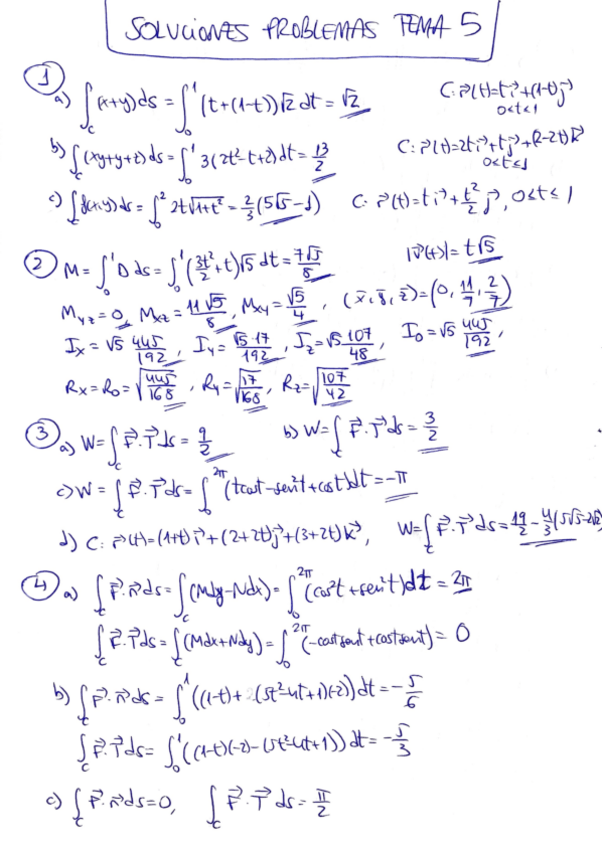 SOLUCIONES PROBLEMAS TEMA 5
① a) ∫_C (x+y)ds = ∫_0^1 (t+(1-t))√2 dt = √2   C: r⃗(t)=t i⃗+(1-t)j⃗
0≤t≤1
b) ∫_C (xy+y+z)ds = ∫_0^1 3(2t²-t+2)dt = 13/2   C: r⃗(t)=2t i⃗+t j⃗+(2-2t)k⃗
0≤t≤1
c) ∫_C f(x,y)ds = ∫_0^2 2t√(1+t²) = 2/3 (5√5-1)   C: r⃗(t)=t i⃗+t²/2 j⃗, 0≤t≤1
② M = ∫_0^1 D ds = ∫_0^1 (3t²/2+t)√5 dt = 7√5/8   |v⃗(t)|= t√5
M_yz=0, M_xz=11√5/8, M_xy=√5/4, (x̄,ȳ,z̄)=(0, 11/7, 2/7)
I_x=√5 445/192, I_y=√5·17/192, I_z=√5 107/48, I_0=√5 445/192,
R_x=R_0=√(445/168), R_y=√(17/168), R_z=√(107/42)
③ a) W=∫_C F⃗·T⃗ds = 9/2   b) W=∫_C F⃗·T⃗ds = 3/2
c) W = ∫_C F⃗·T⃗ds = ∫_0^2π (tcost-sen²t+cost)dt = -π
d) C: r⃗(t)=(1+t)i⃗+(2+2t)j⃗+(3+2t)k⃗, W=∫_C F⃗·T⃗ds=19/2-4/3(5√5-2√2)
④ a) ∫_C F⃗·n⃗ds = ∫_C (Mdy-Ndx) = ∫_0^2π (cos²t+sen²t)dt = 2π
∫_C F⃗·T⃗ds = ∫_C (Mdx+Ndy) = ∫_0^2π (-costsent+costsent) = 0
b) ∫_C F⃗·n⃗ds = ∫_0^1 ((1-t)+(5t²-4t+1)(-2))dt = -5/6
∫_C F⃗·T⃗ds = ∫_0^1 ((1-t)(-2)-(5t²-4t+1))dt = -5/3
c) ∫_C F⃗·n⃗ds=0, ∫_C F⃗·T⃗ds = π/2